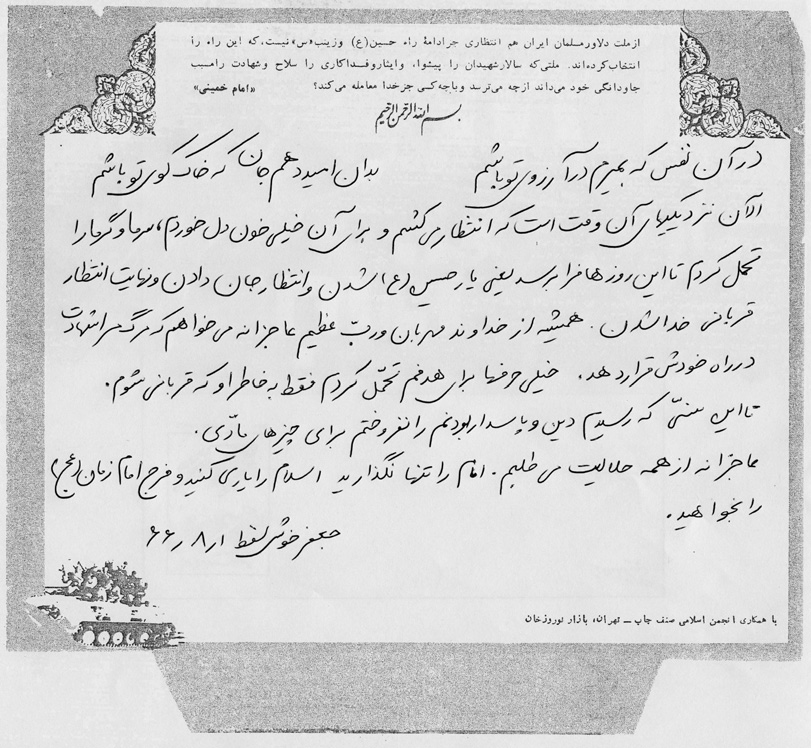 از ملت دلاور مسلمان ایران هم انتظاری جز ادامهٔ راه حسین(ع) وزینب«س»نیست،که این راه را
انتخاب کرده‌اند. ملتی‌که سالار شهیدان را پیشوا، وایثار و فداکاری را سلاح وشهادت را سبب
جاودانگی خود می‌داند ازچه می‌ترسد وباچه‌کسی جزخدا معامله می‌کند؟ «امام خمینی»
بسم الله الرحمن الرحیم
در آن نفس که بمیرم در آرزوی تو باشم بدان امید دهم جان که خاک کوی تو باشم
الآن نزدیکیهای آن وقت است که انتظار می کشم و برای آن خیلی خون دل خوردم، سرما و گرما را
تحمل کردم تا این روزها فرا برسد یعنی یار حسین (ع) شدن و انتظار جان دادن و نهایت انتظار
قربانی خدا شدن. همیشه از خداوند مهربان و ربّ عظیم عاجزانه می خواهم که مرگ مرا شهادت
در راه خودش قرار دهد. خیلی حرفها برای هدفم تحمّل کردم فقط به خاطر او که قربانی شوم.
تا این سنّی که رسیدم دین و پاسدار بودنم را نفروختم برای چیزهای مادّی.
عاجزانه از همه حلالیت می طلبم. امام را تنها نگذارید اسلام را یاری کنید و فرج امام زمان (عج)
را بخواهید.
جعفر خوش لفظ ۱ر۸ر۶۶
با همکاری انجمن اسلامی صنف چاپ ــ تهران، بازار نوروزخان